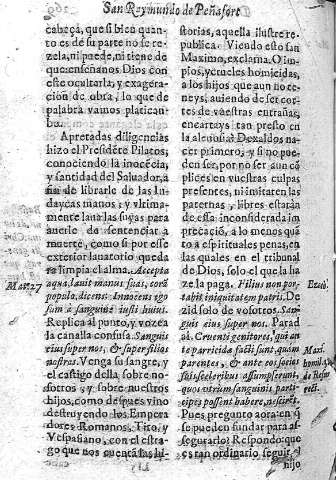 San Raymundo de Peñafort
cabeça, que si bien quan-
to es de su parte no se re-
zela, ni puede, ni tiene de
que: enseñanos Dios con
este ocultarla, y exagera-
cion de obra, lo que de
palabra vamos platican-
do.
Apretadas diligencias
hizo el Presidẽte Pilatos,
conociendo la inocẽcia,
y santidad del Salvador, a
fin de librarle de las In-
daycas manos; y vltima-
mente laua las suyas para
auerle de sentenciar a
muerte, como si por esse
exterior lauatorio queda
ra limpia el alma. Accepta
aqua, lauit manus suas, corã
populo, dicens: Innocens ego
sum à sanguine iusti huius.
Replica al punto, y vozea
la canalla confusa. Sanguis
eius super nos, & super filios
nostros. Venga su sangre, y
el castigo della sobre no-
sotros; y sobre nuestros
hijos, como despues vino
destruyendo los Empera
dores Romanos, Tito, y
Vespasiano, con el estra-
go que nos cuentã las his-
Mat. 27
storias, aquella ilustre re-
publica. Viendo esto san
Maximo, exclama. O im-
pios, y crueles homicidas,
a los hijos que aun no te-
neys, auiendo de ser cor-
tes de vuestras entrañas,
encartays tan presto en
la alcuña? Dexaldos na-
cer primero; y si no pue-
den ser, por no ser aun cõ
plices en vuestras culpas
presentes, ni imitaren las
paternas, libres estarán
de essa inconsiderada im
precació, a lo menos quã
to a espirituales penas, en
las quales en el tribunal
de Dios, solo el que la ha
ze la paga. Filius non por-
tabit iniquitatem patris. De
zid solo de vosotros. San-
guis eius super nos. Parad
aì. Cruenti genitores, qui an
te parricidæ facti sunt, quàm
parentes, & ante eos socios
sui sceleribus assumpserunt,
quos etiam sanguinis parti-
cipes possent habere, nesciret.
Pues pregunto aora en q̃
se pueden fundar para as-
segurarlo? Respondo: que
es tan ordinario seguir el
hijo
Ezech.
Maxi.
homil. 4